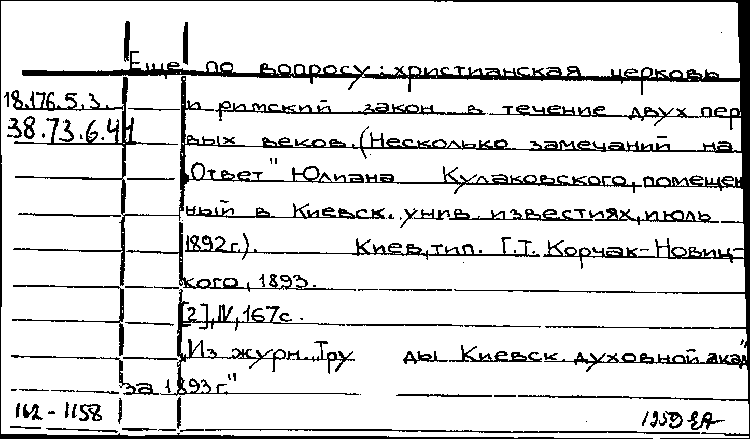 Еще по вопросу: христианская церковь
18.176.5.3. и римский закон в течение двух пер
38.73.6.41 вых веков. (Несколько замечаний на
„Ответ" Юлиана Кулаковского, помещен
ный в Киевск. унив. известиях, июль
1892г.). Киев, тип. Г.Т. Корчак-Новиц-
кого, 1893.
[2], IV, 167с.
„Из журн. „Тру ды Киевск. духовной акад"
за 1893г."
162-1158